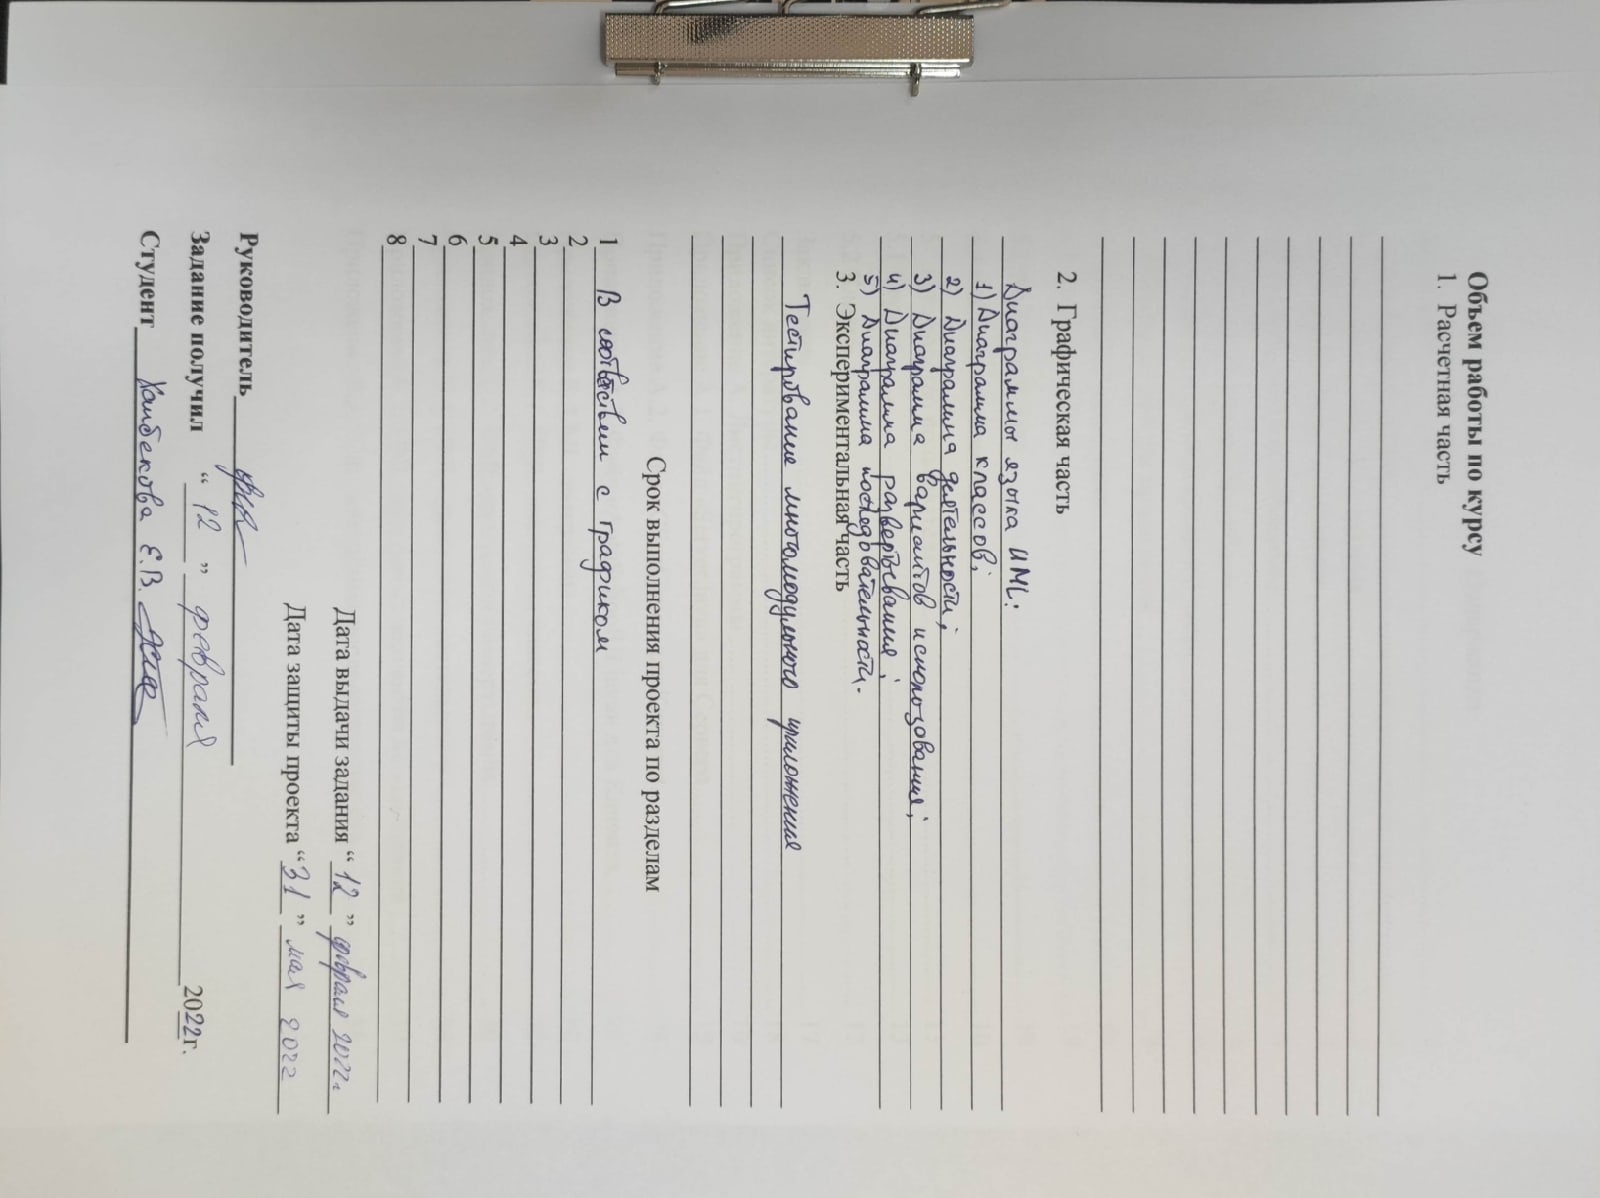 Объем работы по курсу
1. Расчетная часть
2. Графическая часть
Диаграммы языка UML:
1) Диаграмма классов;
2) Диаграмма деятельности;
3) Диаграмма вариантов использования;
4) Диаграмма развертывания;
5) Диаграмма последовательности.
3. Экспериментальная часть
Тестирование многомодульного приложения
Срок выполнения проекта по разделам
1 В соответствии с графиком
2
3
4
5
6
7
8
Дата выдачи задания “12” февраля 2022г
Дата защиты проекта “31” мая 2022
Руководитель
Задание получил “12” февраля 2022г.
Студент Хаибекова Е.В.